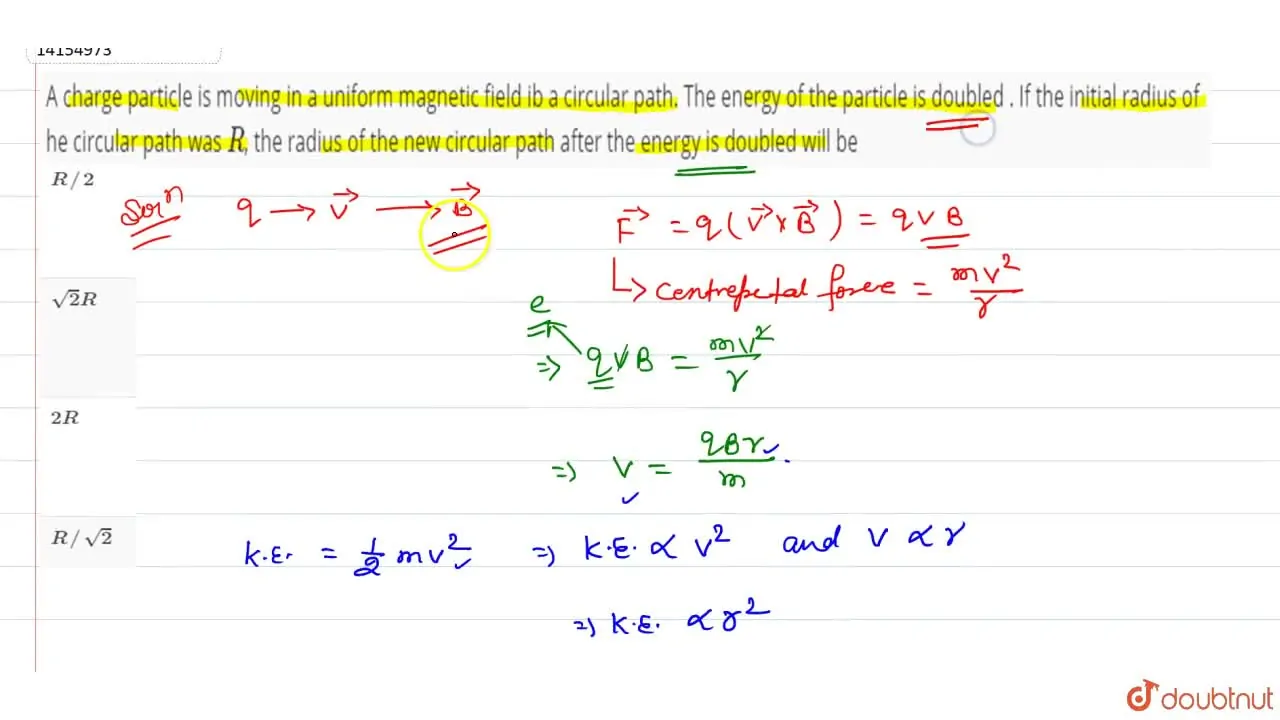 14154973
A charge particle is moving in a uniform magnetic field ib a circular path. The energy of the particle is doubled . If the initial radius of
he circular path was R, the radius of the new circular path after the energy is doubled will be
R/2
Solⁿ q → v⃗ → B⃗
F⃗ = q(v⃗ × B⃗) = qvB
↳ centrepetal force = mv²/r
√2R
e
⇒ qvB = mv²/r
2R
⇒ v = qBr/m
R/√2
K.E. = 1/2 mv² ⇒ K.E. ∝ v² and v ∝ r
⇒ K.E. ∝ r²
doubtnut